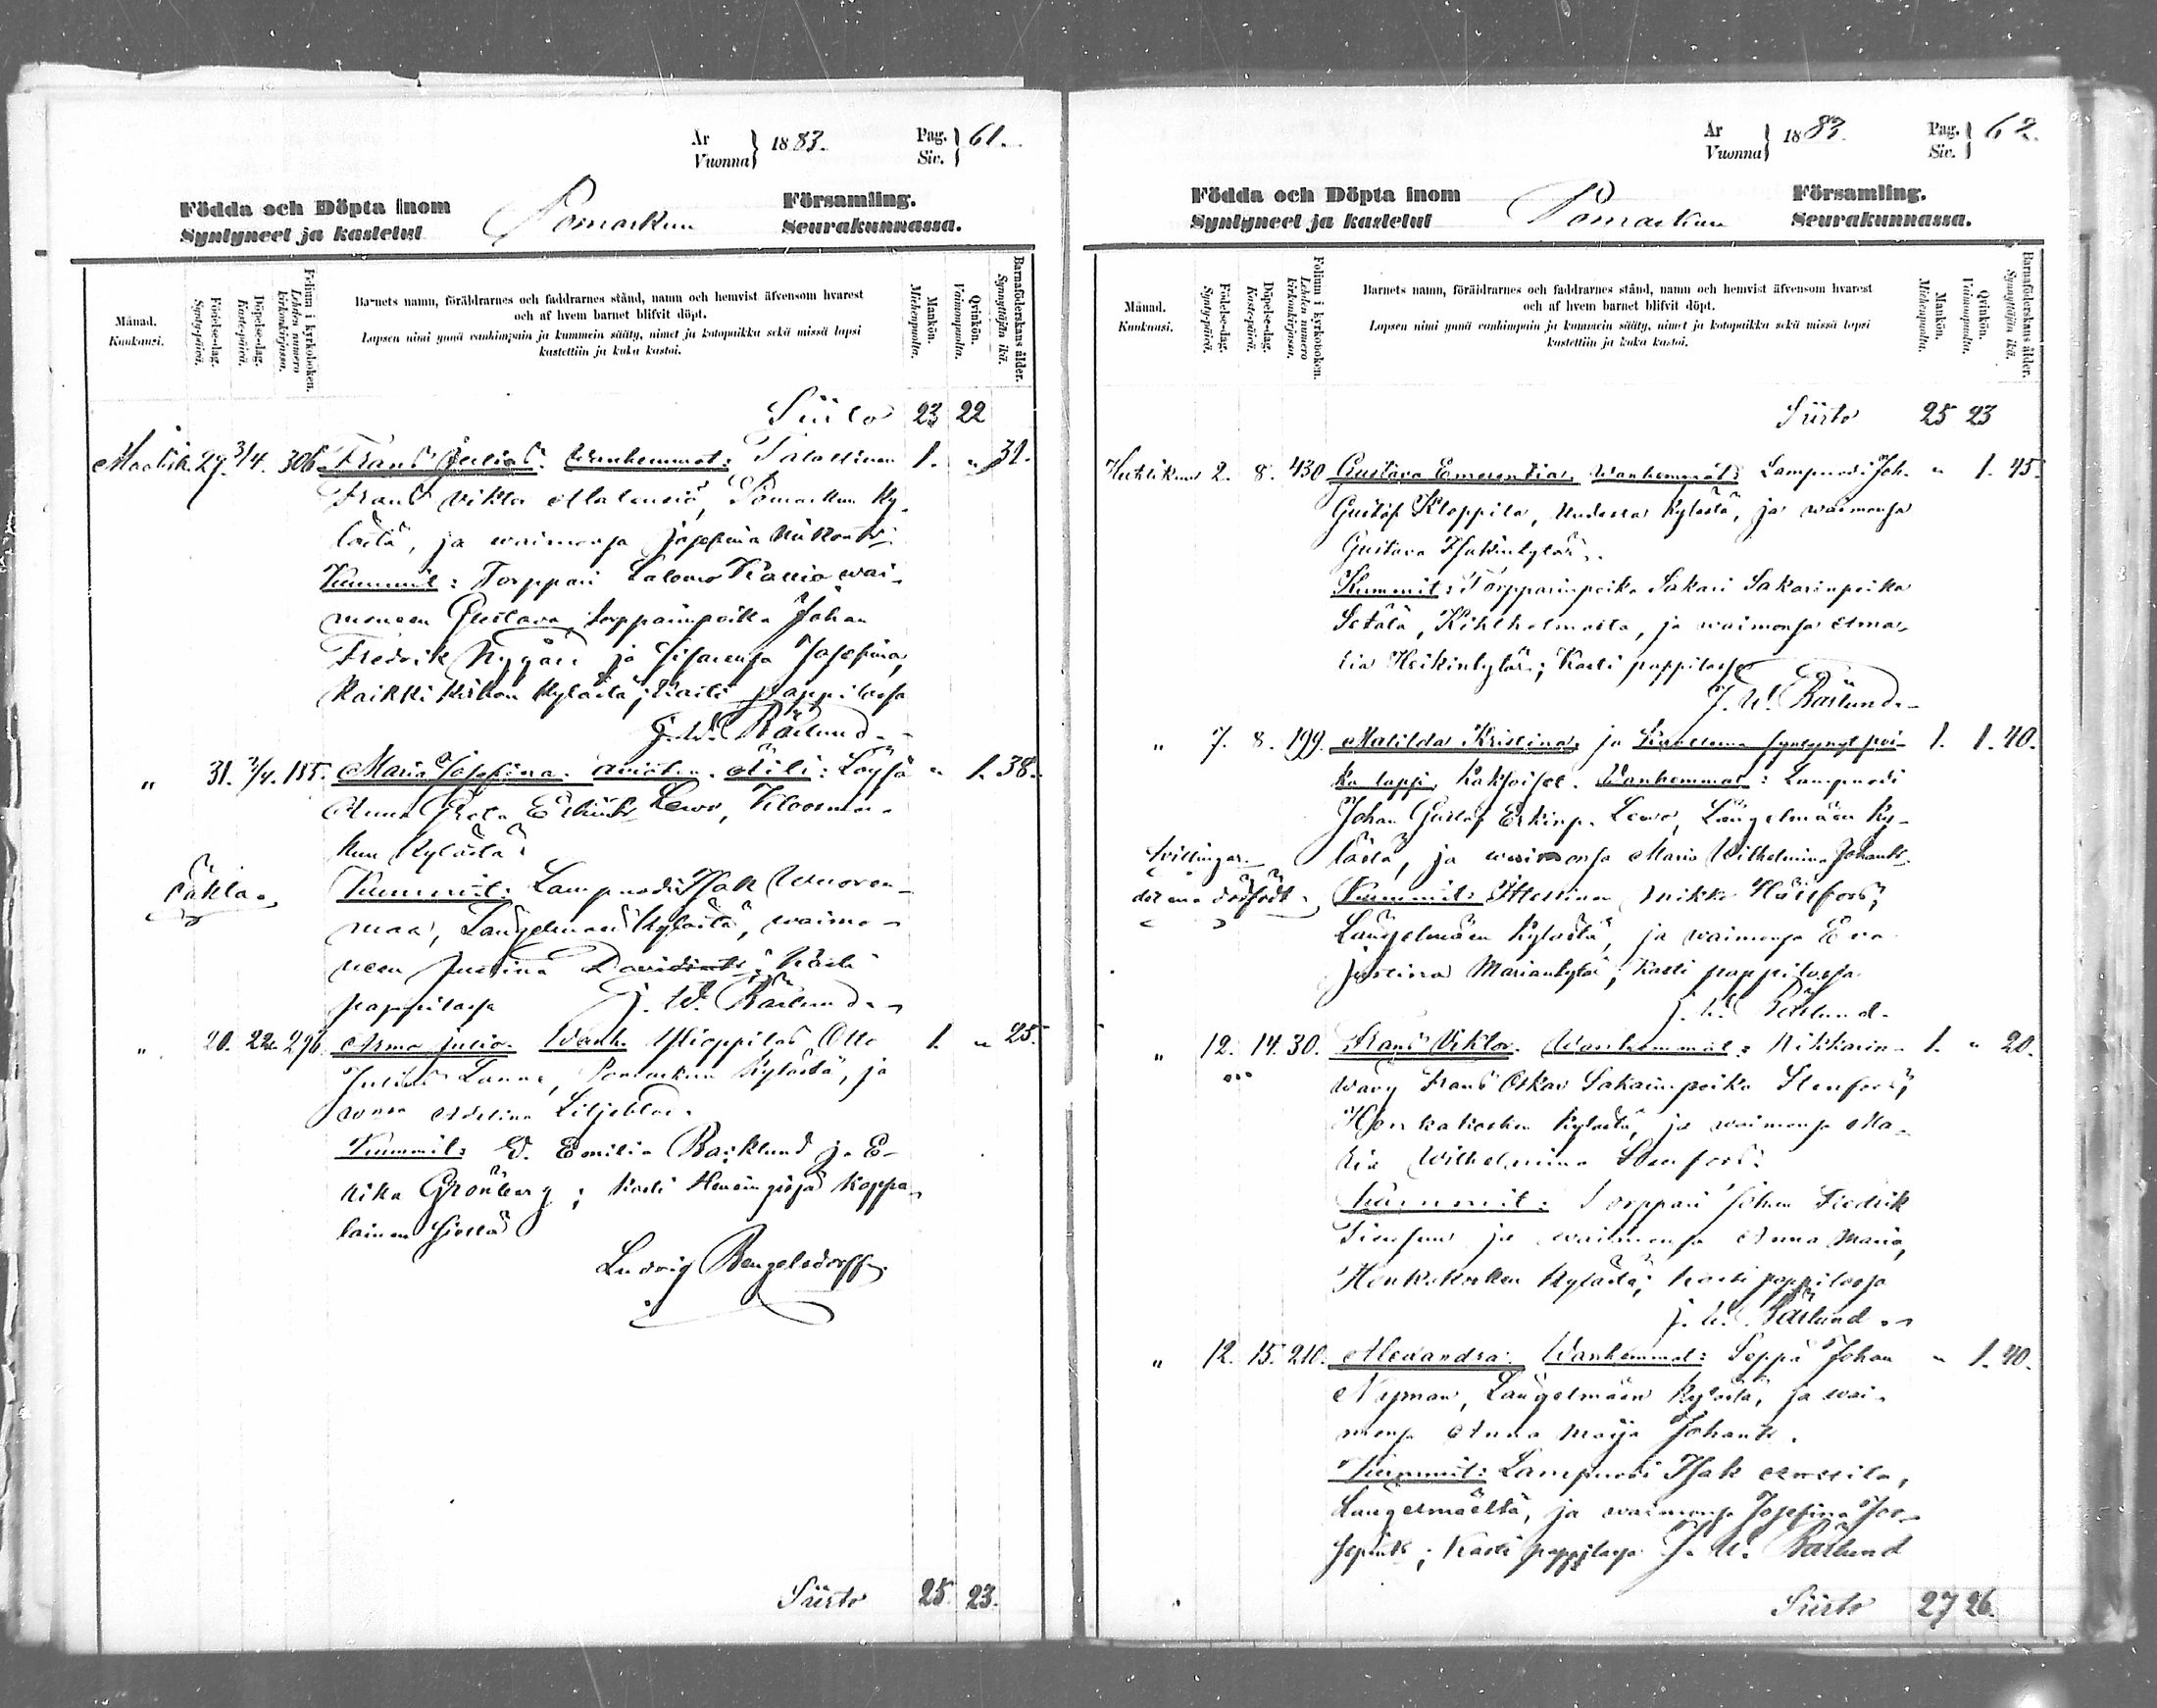 År
Vuonna } 1883. Pag.
Siv. } 61.
Födda och Döpta inom
Syntyneet ja kastetut Pomarkun Församling.
Seurakunnassa.
Månad.
Kuukausi.
Födelse-dag.
Synty-päivä.
Döpelse-dag.
Kaste-päivä.
Folium i kyrkoboken.
Lehden numero
kirkonkirjassa.
Barnets namn, föräldrarnes och faddrarnes stånd, namn och hemvist äfvensom hvarest
och af hvem barnet blifvit döpt.
Lapsen nimi ynnä vanhimpain ja kummein sääty, nimet ja kotopaikka sekä missä lapsi
kastettiin ja kuka kastoi.
Mankön.
Miehenpuolta.
Qvinkön.
Vaimonpuolta.
Barnaföderskans ålder.
Synnyttäjän ikä.
Siirto 23 22
Maalisk. 29. 3/4. 306. Frans Julius. Wanhemmat: Talollinen 1. " 31.
Frans Viktor, Pomarkun ky-
lästä, ja waimonsa Josefina
Kummit: Torppari Salomo Kallio wai-
moneen Gustava, torpparinpoika Johan
Fredrik Nygård ja sisarensa Josefina,
kaikki kirkon kylästä; Kasti pappilassa
J. W. Bärlund.
" 31. 3/4. 185. Maria Josefina. Äiti: Löysä " 1. 38.
Anna Greta Erkint. Lewo,
kun kylästä.
Äkta. Kummit: Lampuodi Isak Wuoren-
maa, Längelmäen kylästä, waimo-
neen Justina Davidint.; Kasti
pappilassa J. W. Bärlund.
" 20. 22. 296. Arma Julia. Wanh. Ylioppilas Otto 1. " 25.
Julius Lanne, Pomarkun kylästä, ja
Adelina Liljeblad.
Kummit: E. Emilia Backlund ja E-
rika Grönberg; Kasti Koppa-
lainen
Ludvig Bengelsdorff.
Siirto 25. 23.
År
Vuonna } 1883. Pag.
Siv. } 62.
Födda och Döpta inom
Syntyneet ja kastetut Pomarkun Församling.
Seurakunnassa.
Månad.
Kuukausi.
Födelse-dag.
Synty-päivä.
Döpelse-dag.
Kaste-päivä.
Folium i kyrkoboken.
Lehden numero
kirkonkirjassa.
Barnets namn, föräldrarnes och faddrarnes stånd, namn och hemvist äfvensom hvarest
och af hvem barnet blifvit döpt.
Lapsen nimi ynnä vanhimpain ja kummein sääty, nimet ja kotopaikka sekä missä lapsi
kastettiin ja kuka kastoi.
Mankön.
Miehenpuolta.
Qvinkön.
Vaimonpuolta.
Barnaföderskans ålder.
Synnyttäjän ikä.
Siirto 25 23
Huhtikuu 2. 8. 430 Gustava Emerentia. Wanhemmat: Lampuodi Joh. " 1. 45.
Gustaf Kloppila, kylästä, ja waimonsa
Gustava Isakintytär.
Kummit: Torpparinpoika Sakari Sakarinpoika
Setälä, ja waimonsa Ama-
lia Heikintytär; Kasti pappilassa
J. W. Bärlund.
" 7. 8. 199. Matilda Kristina, ja kuolleena syntynyt poi- 1. 1. 40.
ka lapsi, kaksoiset. Wanhemmat: Lampuodi
Johan Gustaf Erkinp. Lewo, Längelmäen ky-
Tvillingar. lästä, ja waimonsa Maria Wilhelmina Johant.
det ena dödfödt. Kummit: Itsellinen Mikko Hällfors,
Längelmäen kylästä, ja waimonsa Eva
Justina Mariantytär; Kasti pappilassa
J. W. Bärlund.
" 12. 14. 30. Frans Viktor. Wanhemmat: Nikkarin- 1. " 20.
wävy Frans Oskar Sakarinpoika Stenfors,
Honkakosken kylästä, ja waimonsa Ma-
ria Wilhelmina Stenfors.
Kummit: Torppari Johan Fredrik
ja waimonsa Anna Maria,
Honkakosken kylästä; Kasti pappilassa
J. W. Bärlund.
" 12. 15. 210. Alexandra. Wanhemmat: Seppä Johan " 1. 40.
Nyman, Längelmäen kylästä, ja wai-
monsa Anna Maija Johant.
Kummit: Lampuodi Isak
Längelmäeltä, ja waimonsa Josefina Joo-
sepint.; Kasti pappilassa J. W. Bärlund
Siirto 27 26.